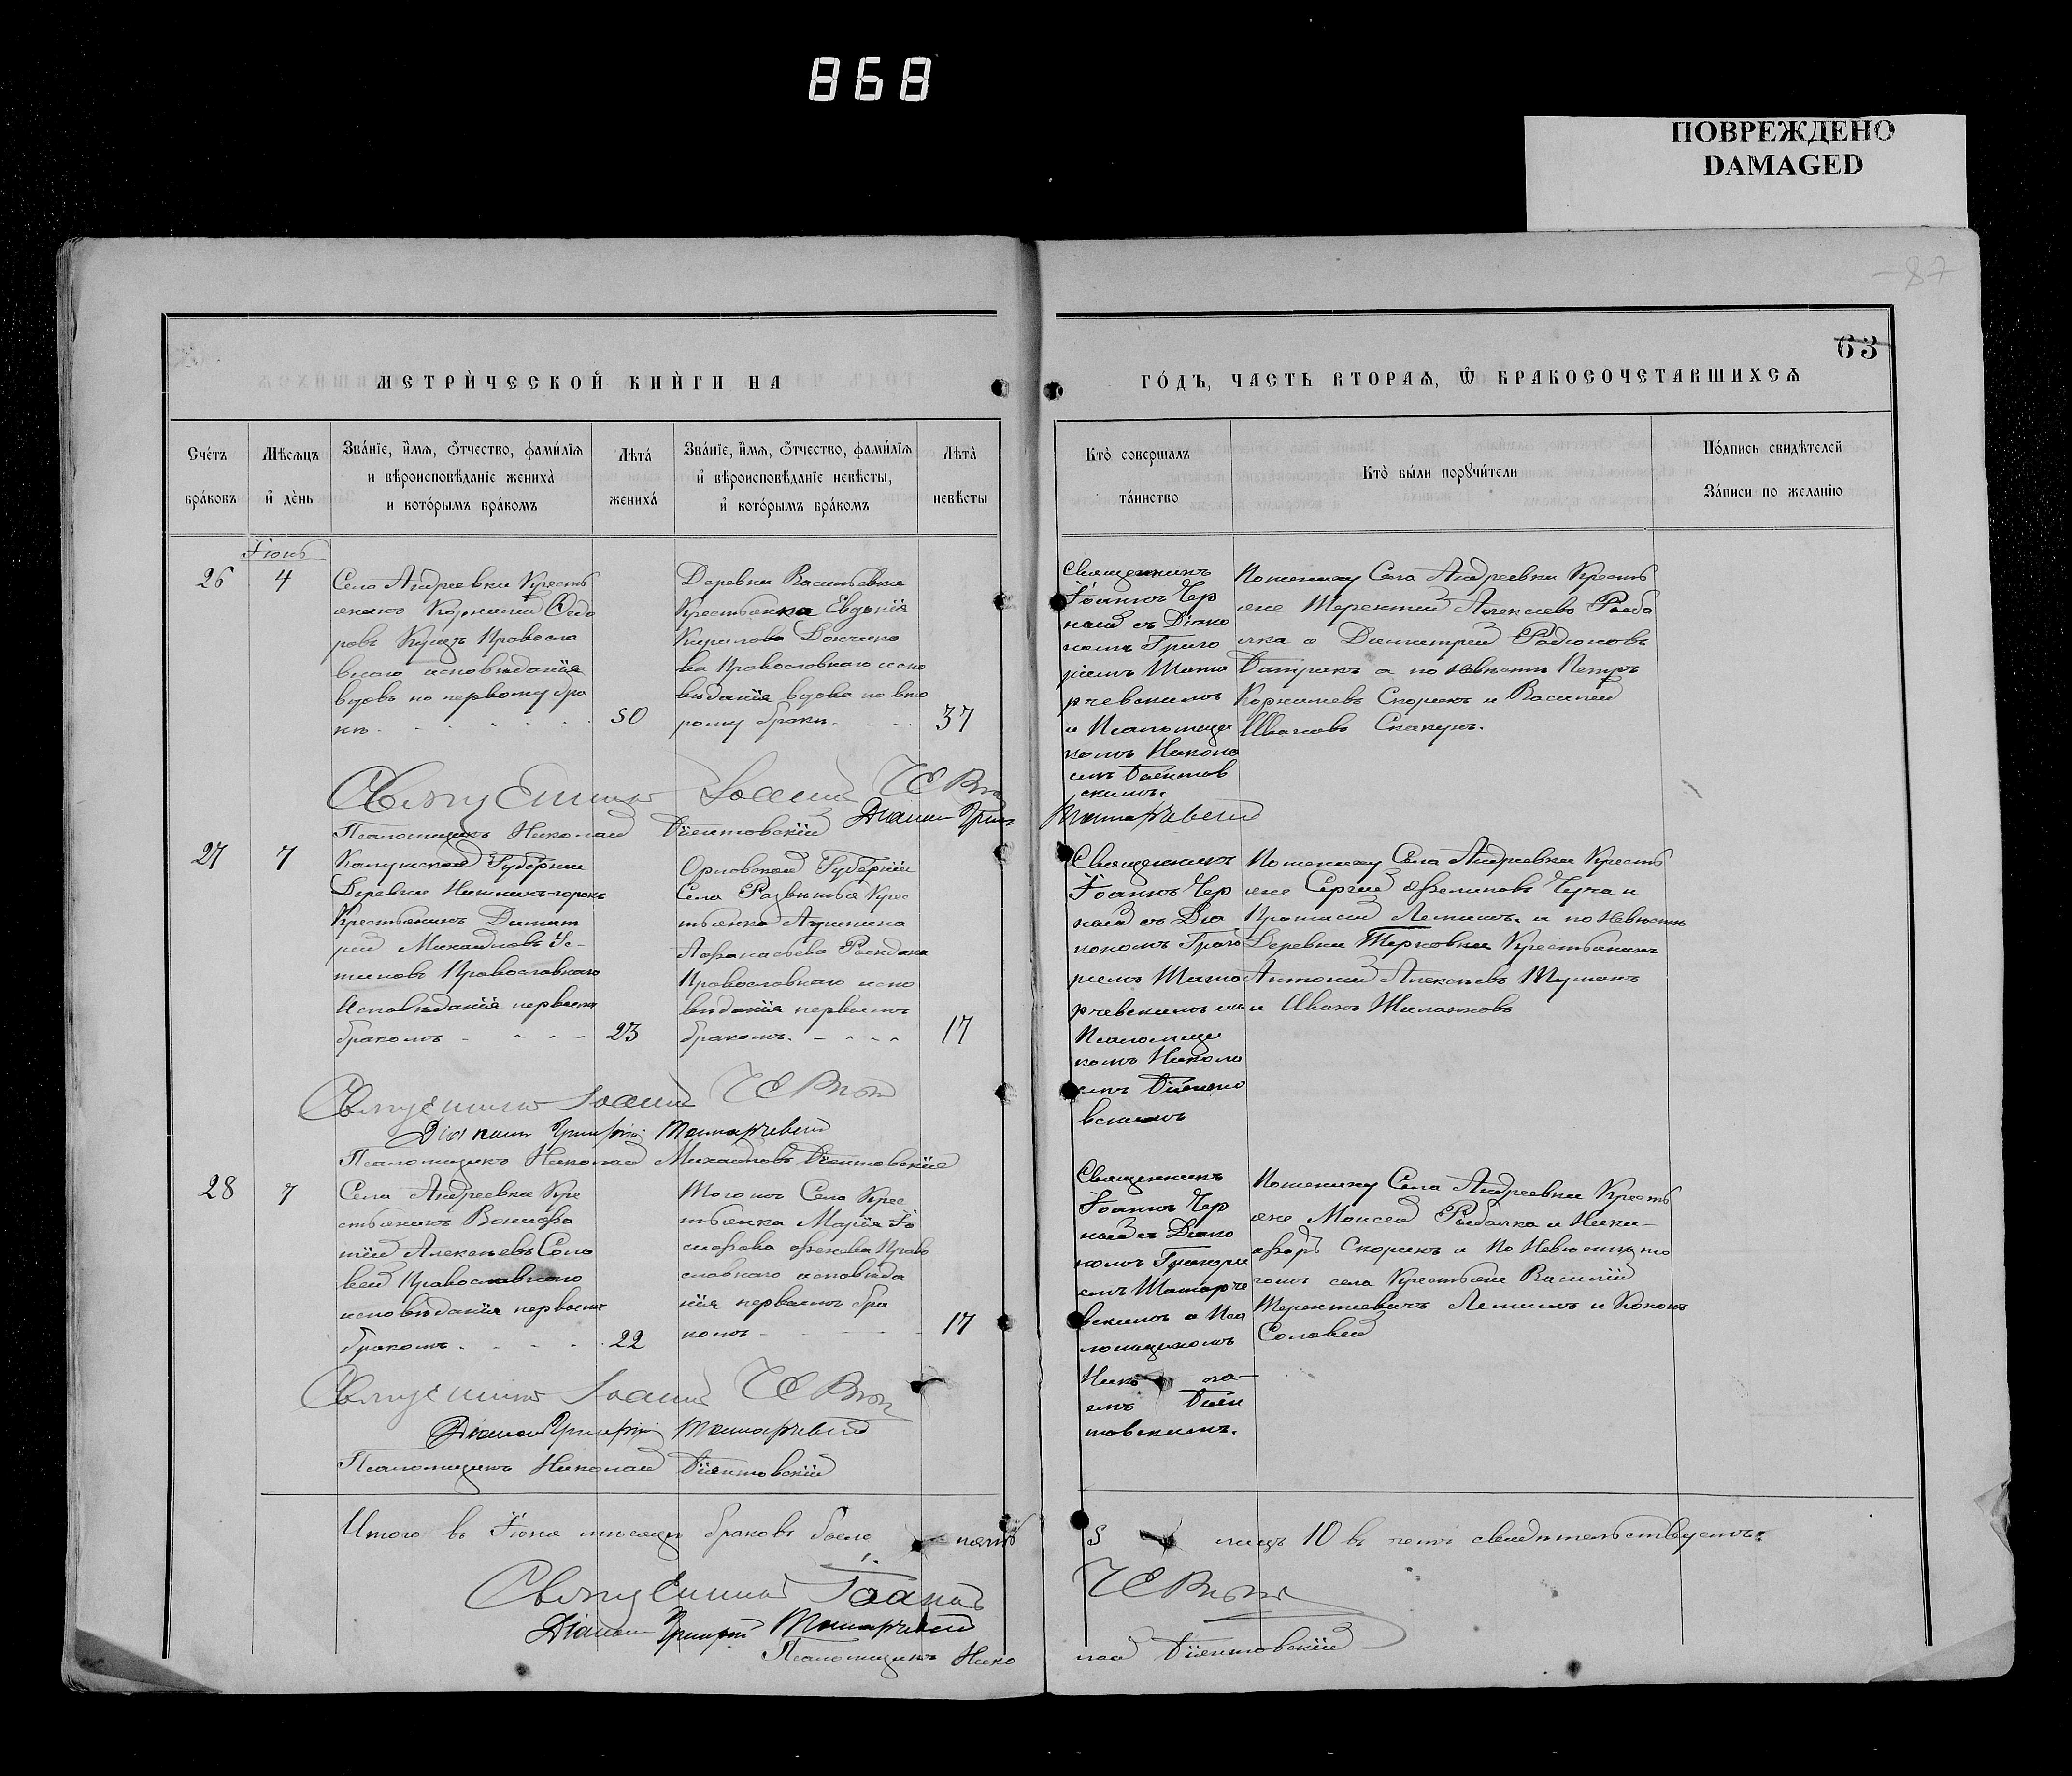 868
ПОВРЕЖДЕНО
DAMAGED
87
63
МЕТРИ́ЧЕСКОЙ КНИ́ГИ НА
ГО́ДЪ, ЧАСТЬ ВТОРАѦ, Ѿ БРАКОСОЧЕТАВШИХСѦ
Сче́тъ бра́ковъ
Мѣсѧцъ и҆ де́нь
Зва́нїе, и҆́мѧ, ѻ҆́тчество, фами́лїѧ
и вѣроисповѣ́данїе жениха̀
и кото́рымъ бра́комъ
Лѣта̀ жениха́
Зва́нїе, и҆́мѧ, ѻ҆́тчество, фами́лїѧ
и҆ вѣроисповѣ́данїе невѣ́сты,
и҆ кото́рымъ бра́комъ
Лѣта̀ невѣ́сты
Кто̀ соверша́лъ
та́инство
Кто̀ бы́ли порꙋчи́тели
По́дпись свидѣ́телей
За́писи по жела́нїю
Іюнь
26
4
Села Андреевки Кресть
янинъ Корнилий Федо
ровъ Православ
внаго исповѣданія
вдовъ по первому бра
кѣ
50
Деревни Васильевки
Крестьянка Евдокія
Кирилова Донченко
ва Православнаго испо
вѣданія вдова по вто
рому браку
37
Священникъ
Іоаннъ Чер
ный съ Діако
номъ Григо
ріемъ Шато
рчевскимъ
и Псаломщи
комъ Никола
емъ
скимъ.
По жениху Села Андреевки Кресть
яне Терентий Алексиевъ Рыба
лка и Димитрей Родіоновъ
а по невѣсти Петръ
Корниевъ Скорикъ и Василий
Ивановъ Скакунъ.
Священникъ Іоаннъ
Діаконъ
Псаломщикъ Николай
27
7
Калужской Губерніи
Деревни
Крестьянинъ Димит
рий Михайловъ Ус-
тиновъ Православнаго
Исповѣданія первымъ
бракомъ
23
Орловской Губерніи
Села Развѣтья Крес
тьянка Агрипина
Афанасьева
Православнаго испо
вѣданія первымъ
бракомъ.
17
Священникъ
Іоаннъ Чер
ный съ Діа
кономъ Григо
ріемъ Шато
рчевскимъ и
Псаломщи
комъ Никола
емъ
вскимъ
По жениху Села Андреевки Кресть
яне Сергий Чуча и
и по Невѣсти
Деревни Терновки Крестьянинъ
Антоний Алексѣевъ
и Иванъ
Священникъ Іоаннъ
Діаконъ Григорій
Псаломщикъ Николай Михайловъ
28
7
Села Андреевки Кре
стьянинъ Вонифа
тій Алексѣевъ Соло
вей Православнаго
исповѣданія первымъ
бракомъ
22
Того же Села Крес
тьянка Марія Іо
сифова Право
славнаго исповѣда
нія первымъ бра
комъ
17
Священникъ
Іоаннъ Чер
ный съ Діако
номъ Григорі
емъ Шаторче
вскимъ и Пса
ломщикомъ
Никола-
емъ
товскимъ.
По жениху Села Андреевки Кресть
яне Моисей Рыбалка и Ники-
форъ Скорикъ и По Невѣсти то
гожъ села Крестьяне Василій
Терентиевичъ и Кононъ
Соловей
Священникъ Іоаннъ
Діаконъ Григорій
Псаломщикъ Николай
Итого въ Іюнѣ мѣсяцѣ браковъ было пять
5 лицъ 10 въ чемъ свидѣтельствуемъ:
Священникъ Іоаннъ
Діаконъ Григорій
Псаломщикъ Нико
лай